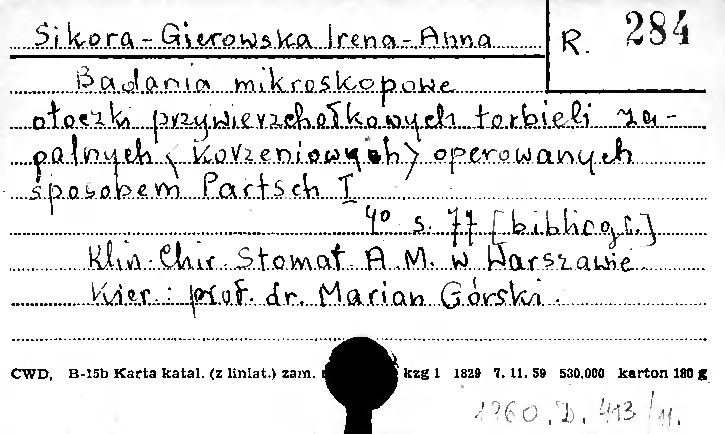 Sikora-Gierowska Irena-Anna
R. 284
Badania mikroskopowe
otoczki przywierzchołkowych torbieli za-
palnych &lt;korzeniowych&gt; operowanych
sposobem Partsch I
4° s. 77 [bibliogr.]
Klin. Chir. Stomat. A.M. w Warszawie
Kier.: prof. dr. Marian Górski.
CWD, B-15b Karta katal. (z liniat.) zam. kzg 1 1829 7. 11. 59 530,000 karton 180 g
1960. D. 413/11.